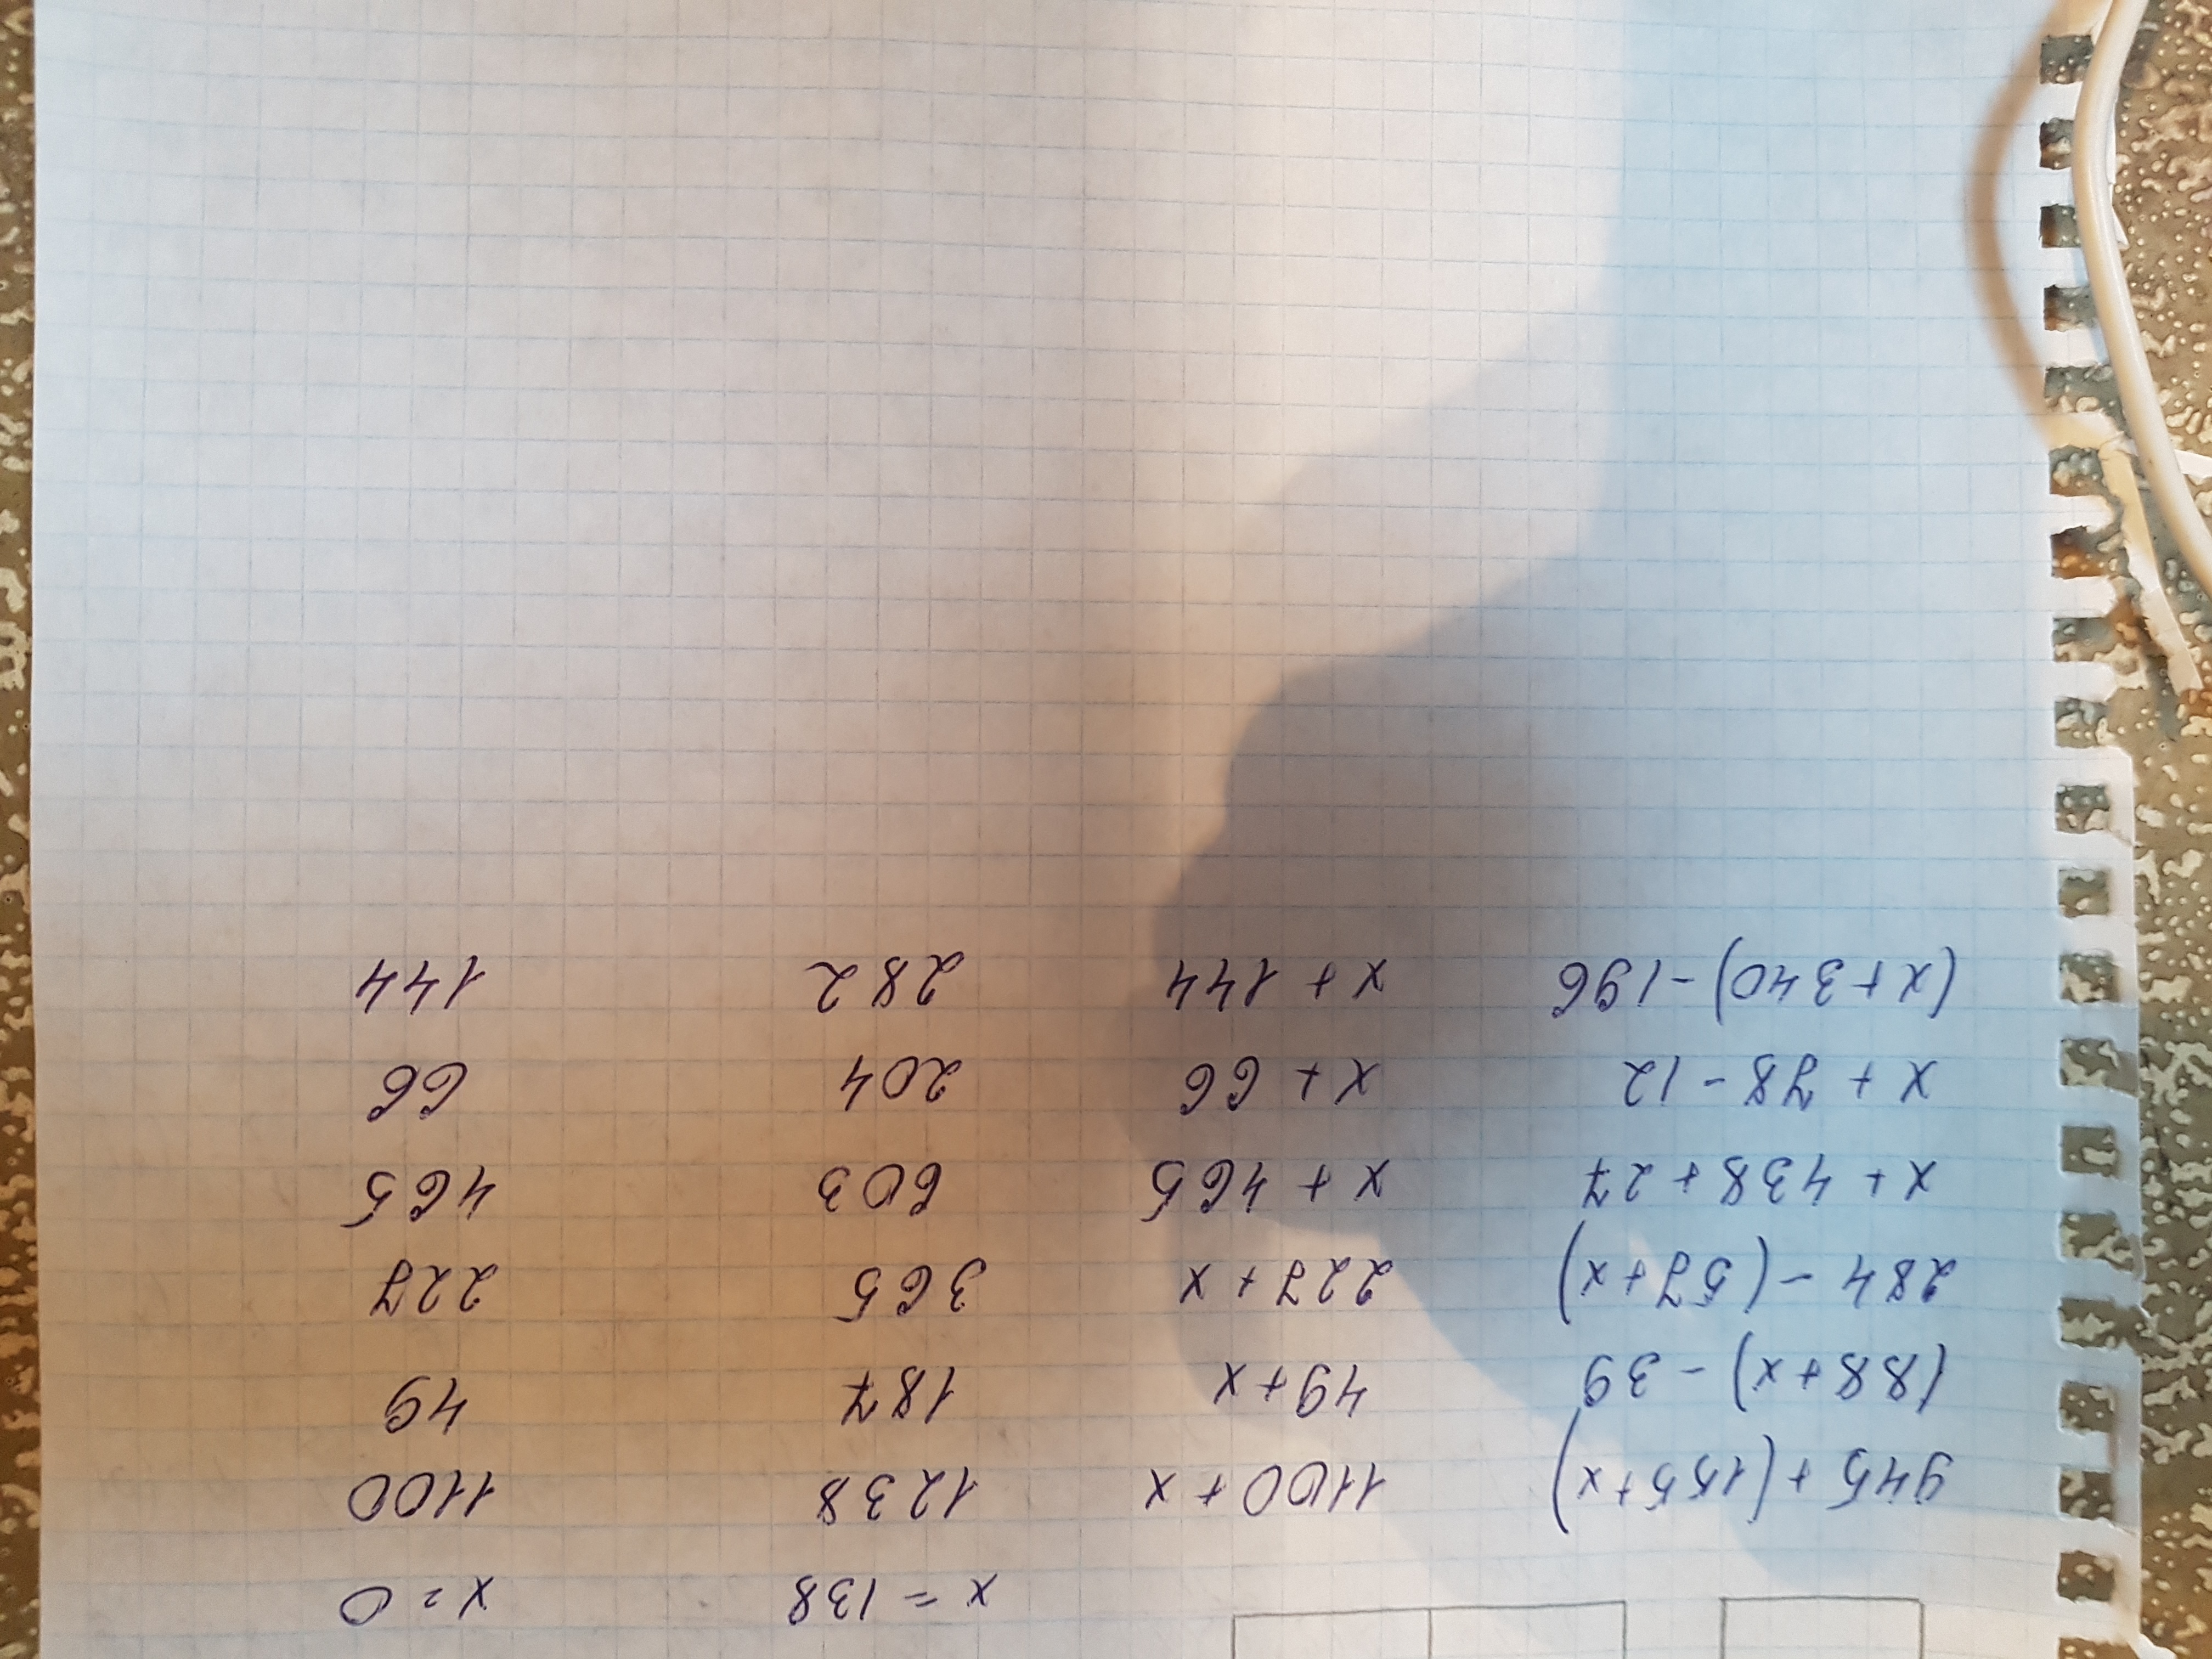 x = 138 x = 0
945 + (155+x) 1100 + x 1238 1100
(88+x) - 39 49+x 187 49
284 - (57+x) 227+x 365 227
x + 438 + 27 x + 465 603 465
x + 78 - 12 x + 66 204 66
(x+340) - 196 x + 144 282 144